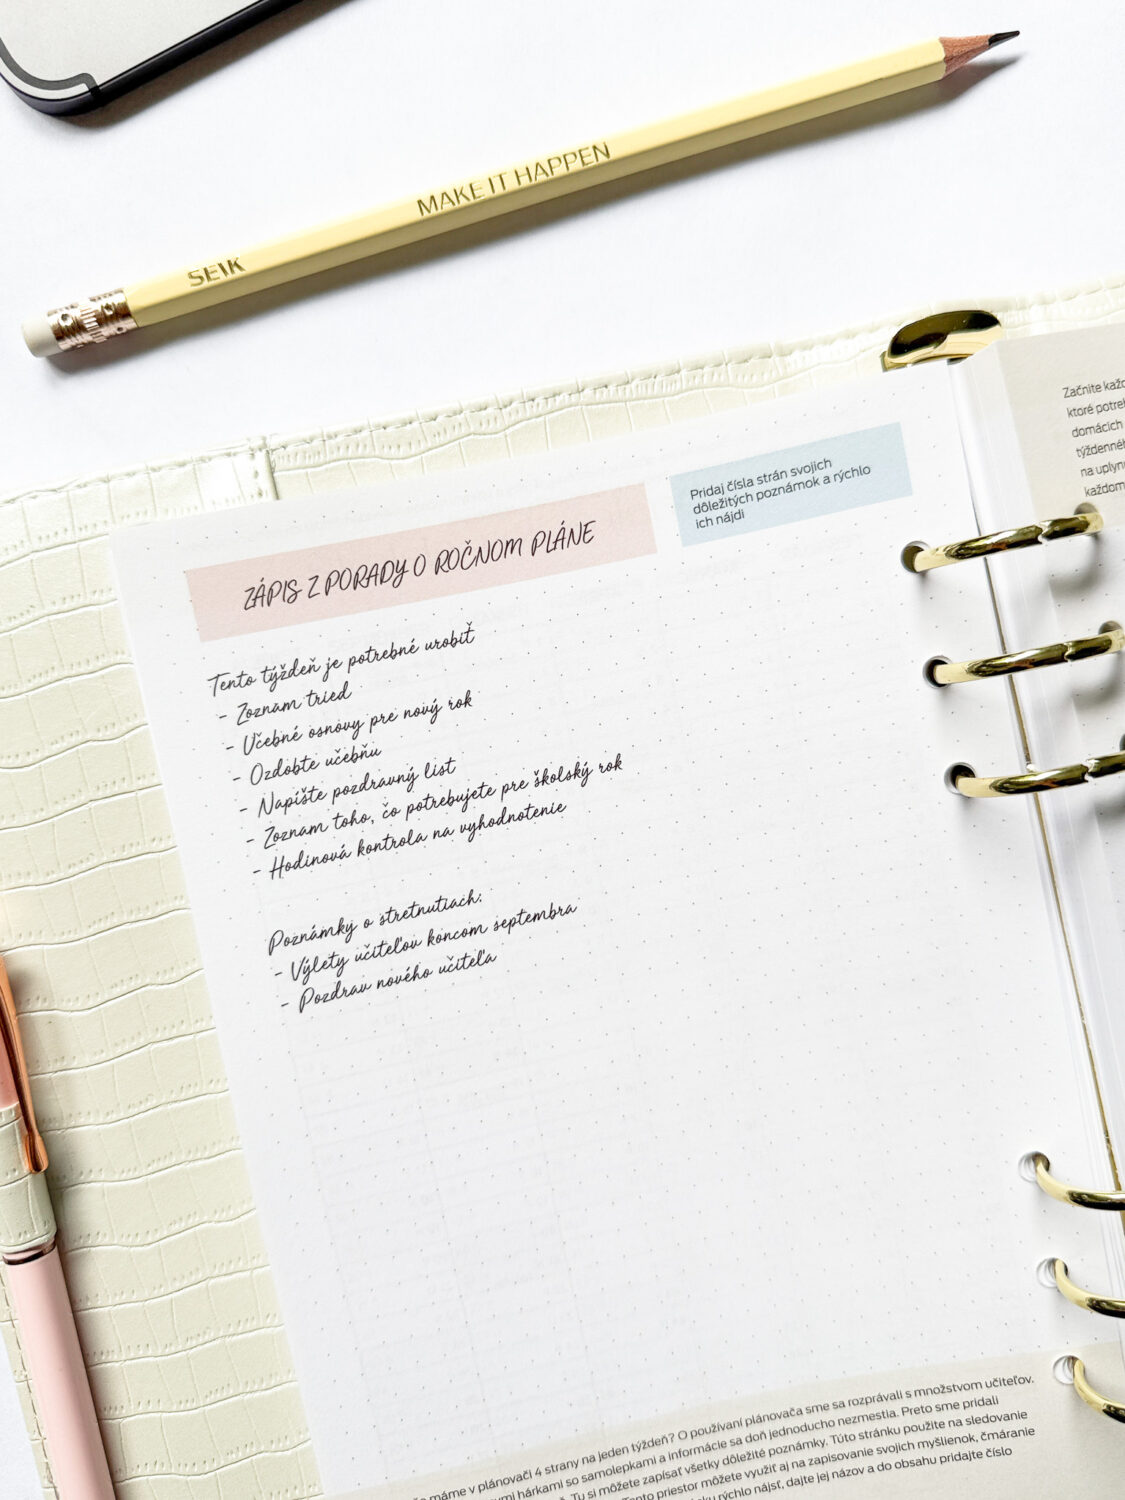 MAKE IT HAPPEN
SEIK
Začnite
ktoré
domácich
na
Pridaj čísla strán svojich
dôležitých poznámok a rýchlo
ich nájdi
ZÁPIS Z PORADY O ROČNOM PLÁNE
Tento týždeň je potrebné urobiť
- Zoznam tried
- Učebné osnovy pre nový rok
- Ozdobte učebňu
- Napíšte pozdravný list
- Zoznam toho, čo potrebujete pre školský rok
- Hodinová kontrola na vyhodnotenie
Poznámky o stretnutiach:
- Výlety učiteľov koncom septembra
- Pozdrav nového učiteľa
máme v plánovači 4 strany na jeden týždeň? O používaní plánovača sme sa rozprávali s množstvom učiteľov.
hárkami so samolepkami a informácie sa doň jednoducho nezmestia. Preto sme pridali
Tu si môžete zapísať všetky dôležité poznámky. Túto stránku použite na sledovanie
priestor môžete využiť aj na zapisovanie svojich myšlienok, čmáranie
rýchlo nájsť, dajte jej názov a do obsahu pridajte číslo